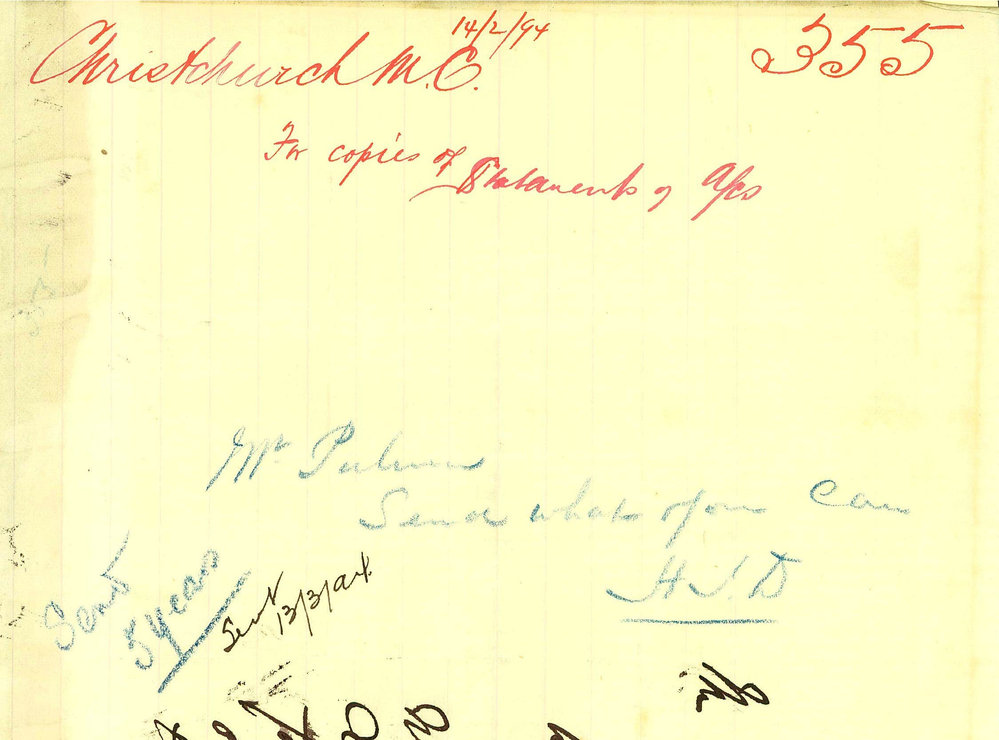 14/2/94
Christchurch M.C. 355
For copies of Statements of A/cs
Mr
Send what you can
H.J.D
Sent
5 years
Sent
13/3/94